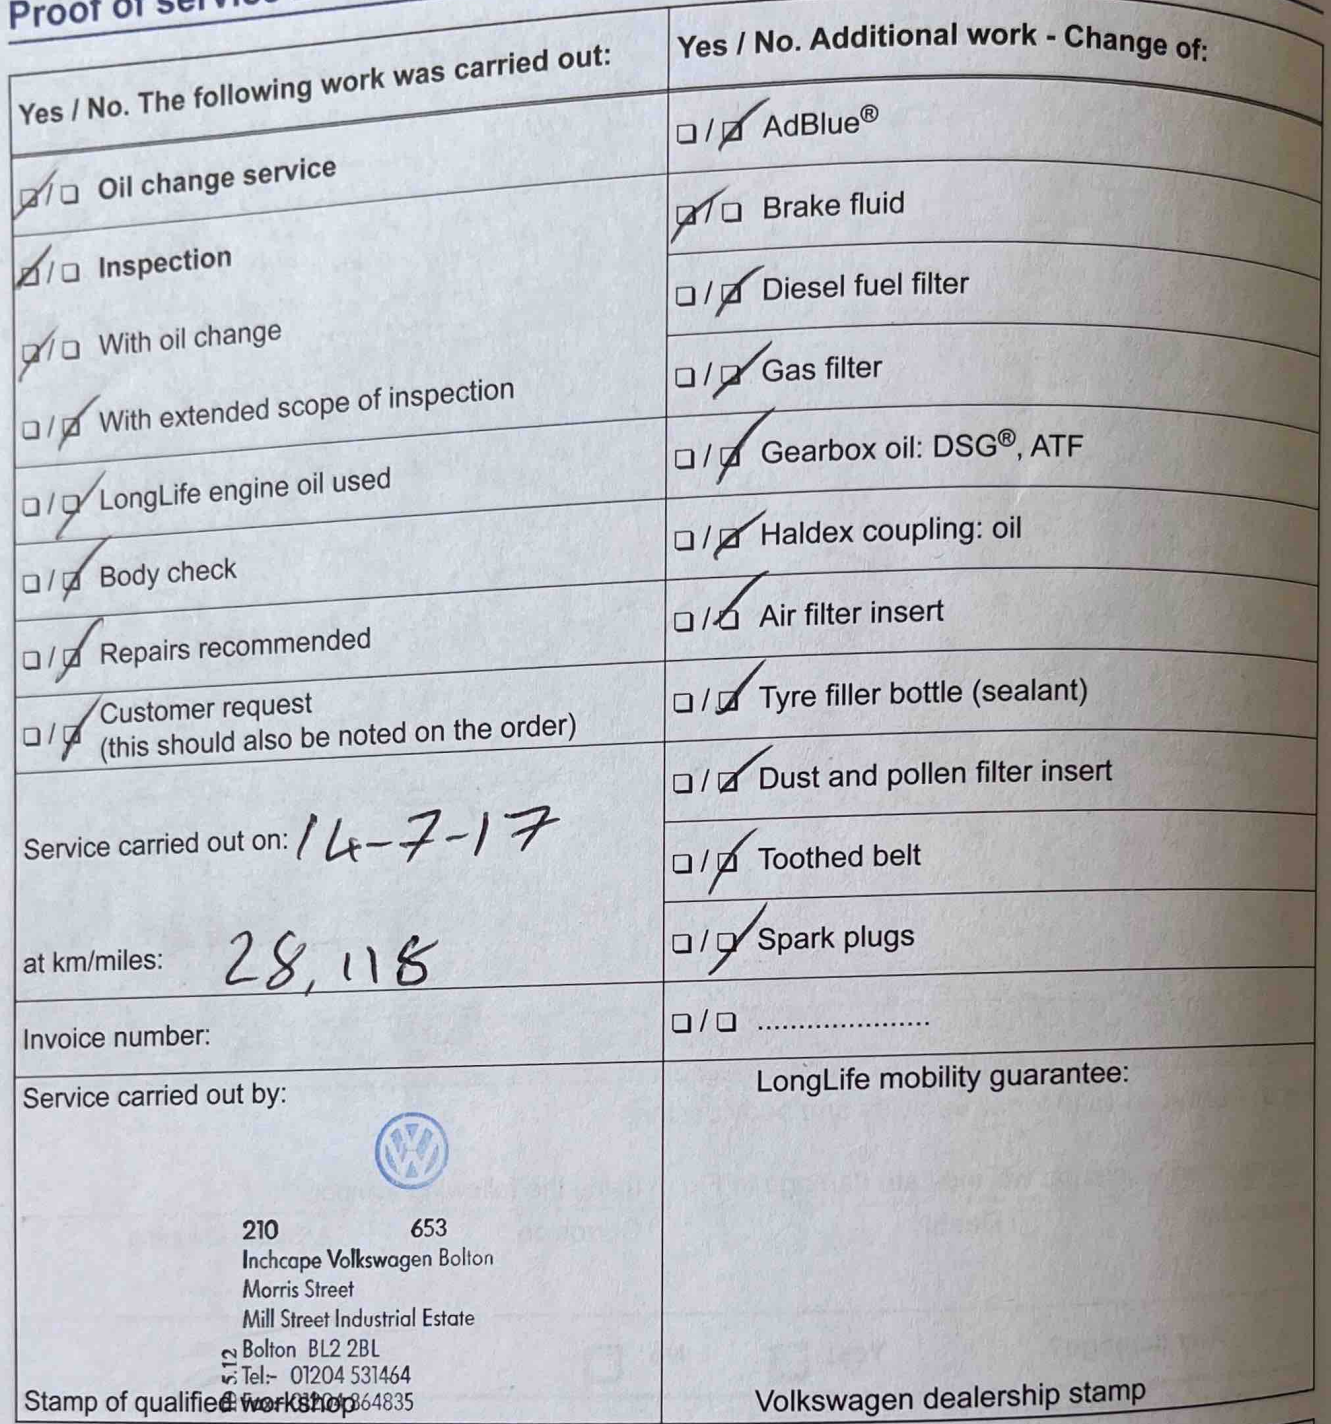 Proof of
Yes / No. The following work was carried out:
☑ / ☐ Oil change service
☑ / ☐ Inspection
☑ / ☐ With oil change
☐ / ☑ With extended scope of inspection
☐ / ☑ LongLife engine oil used
☐ / ☑ Body check
☐ / ☑ Repairs recommended
☐ / ☑ Customer request
(this should also be noted on the order)
Service carried out on: 14-7-17
at km/miles: 28,118
Invoice number:
Service carried out by:
210 653
Inchcape Volkswagen Bolton
Morris Street
Mill Street Industrial Estate
Bolton BL2 2BL
Tel:- 01204 531464
5.12
Stamp of qualified workshop
Yes / No. Additional work - Change of:
☐ / ☑ AdBlue®
☑ / ☐ Brake fluid
☐ / ☑ Diesel fuel filter
☐ / ☑ Gas filter
☐ / ☑ Gearbox oil: DSG®, ATF
☐ / ☑ Haldex coupling: oil
☐ / ☑ Air filter insert
☐ / ☑ Tyre filler bottle (sealant)
☐ / ☑ Dust and pollen filter insert
☐ / ☑ Toothed belt
☐ / ☑ Spark plugs
☐ / ☐ ......................
LongLife mobility guarantee:
Volkswagen dealership stamp